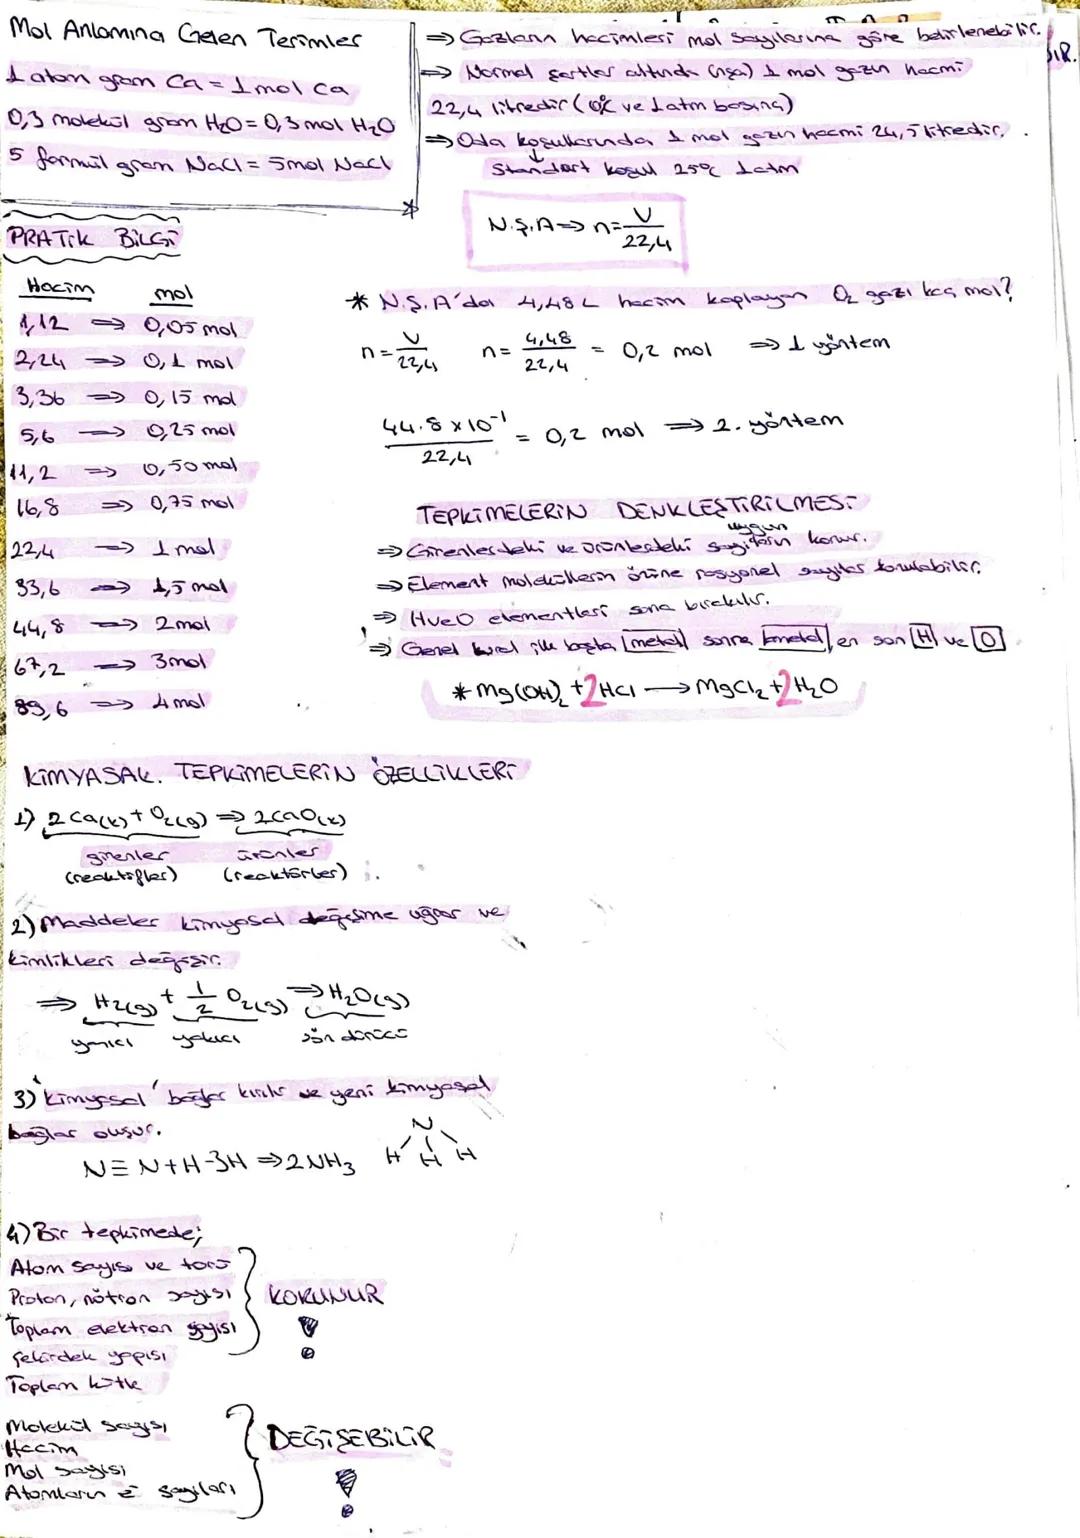 Mol Anlamına Gelen Terimler
1 atom gram Ca = 1 mol Ca
0,3 molekül gram H₂O = 0,3 mol H₂O
5 formül gram NaCl = 5mol NaCl
⇒ Gazların hacimleri mol sayılarına göre belirlenebilir.
⇒ Normal şartlar altında (nşa) 1 mol gazın hacmi
22,4 litredir (0°C ve 1 atm basınç)
⇒ Oda koşullarında 1 mol gazın hacmi 24,5 litredir.
Standart koşul 25°C 1 atm
N.Ş.A ⇒ n = V/22,4
PRATİK BİLGİ
Hacim mol
1,12 ⇒ 0,05 mol
2,24 ⇒ 0,1 mol
3,36 ⇒ 0,15 mol
5,6 ⇒ 0,25 mol
11,2 ⇒ 0,50 mol
16,8 ⇒ 0,75 mol
22,4 ⇒ 1 mol
33,6 ⇒ 1,5 mol
44,8 ⇒ 2 mol
67,2 ⇒ 3 mol
89,6 ⇒ 4 mol
* N.Ş.A'da 4,48 L hacim kaplayan O₂ gazı kaç mol?
n = V/22,4 n = 4,48/22,4 = 0,2 mol ⇒ 1 yöntem
44.8 x 10⁻¹/22,4 = 0,2 mol ⇒ 2. yöntem
TEPKİMELERİN DENKLEŞTİRİLMESİ
uygun
⇒ Girenlerdeki ve ürünlerdeki sayıların konur.
⇒ Element moleküllerin önüne rasyonel sayılar konulabilir.
⇒ H ve O elementleri sona bırakılır.
! ⇒ Genel kural ilk başta metal sonra ametal en son H ve O
* Mg(OH)₂ + 2HCl → MgCl₂ + 2H₂O
KİMYASAL TEPKİMELERİN ÖZELLİKLERİ
1) 2Ca(k) + O₂(g) ⇒ 2CaO(k)
girenler ürünler
(reaktifler) (reaktörler)
2) Maddeler kimyasal değişime uğrar ve
kimlikleri değişir.
⇒ H₂(g) + 1/2 O₂(g) ⇒ H₂O(g)
yanıcı yakıcı söndürücü
3) Kimyasal bağlar kırılır ve yeni kimyasal
bağlar oluşur.
N≡N + H-3H ⇒ 2NH₃
N
H H H
4) Bir tepkimede;
Atom sayısı ve türü
Proton, nötron sayısı
Toplam elektron sayısı
Çekirdek yapısı
Toplam kütle
KORUNUR
!
Molekül sayısı
Hacim
Mol sayısı
Atomların e⁻ sayıları
DEĞİŞEBİLİR
!